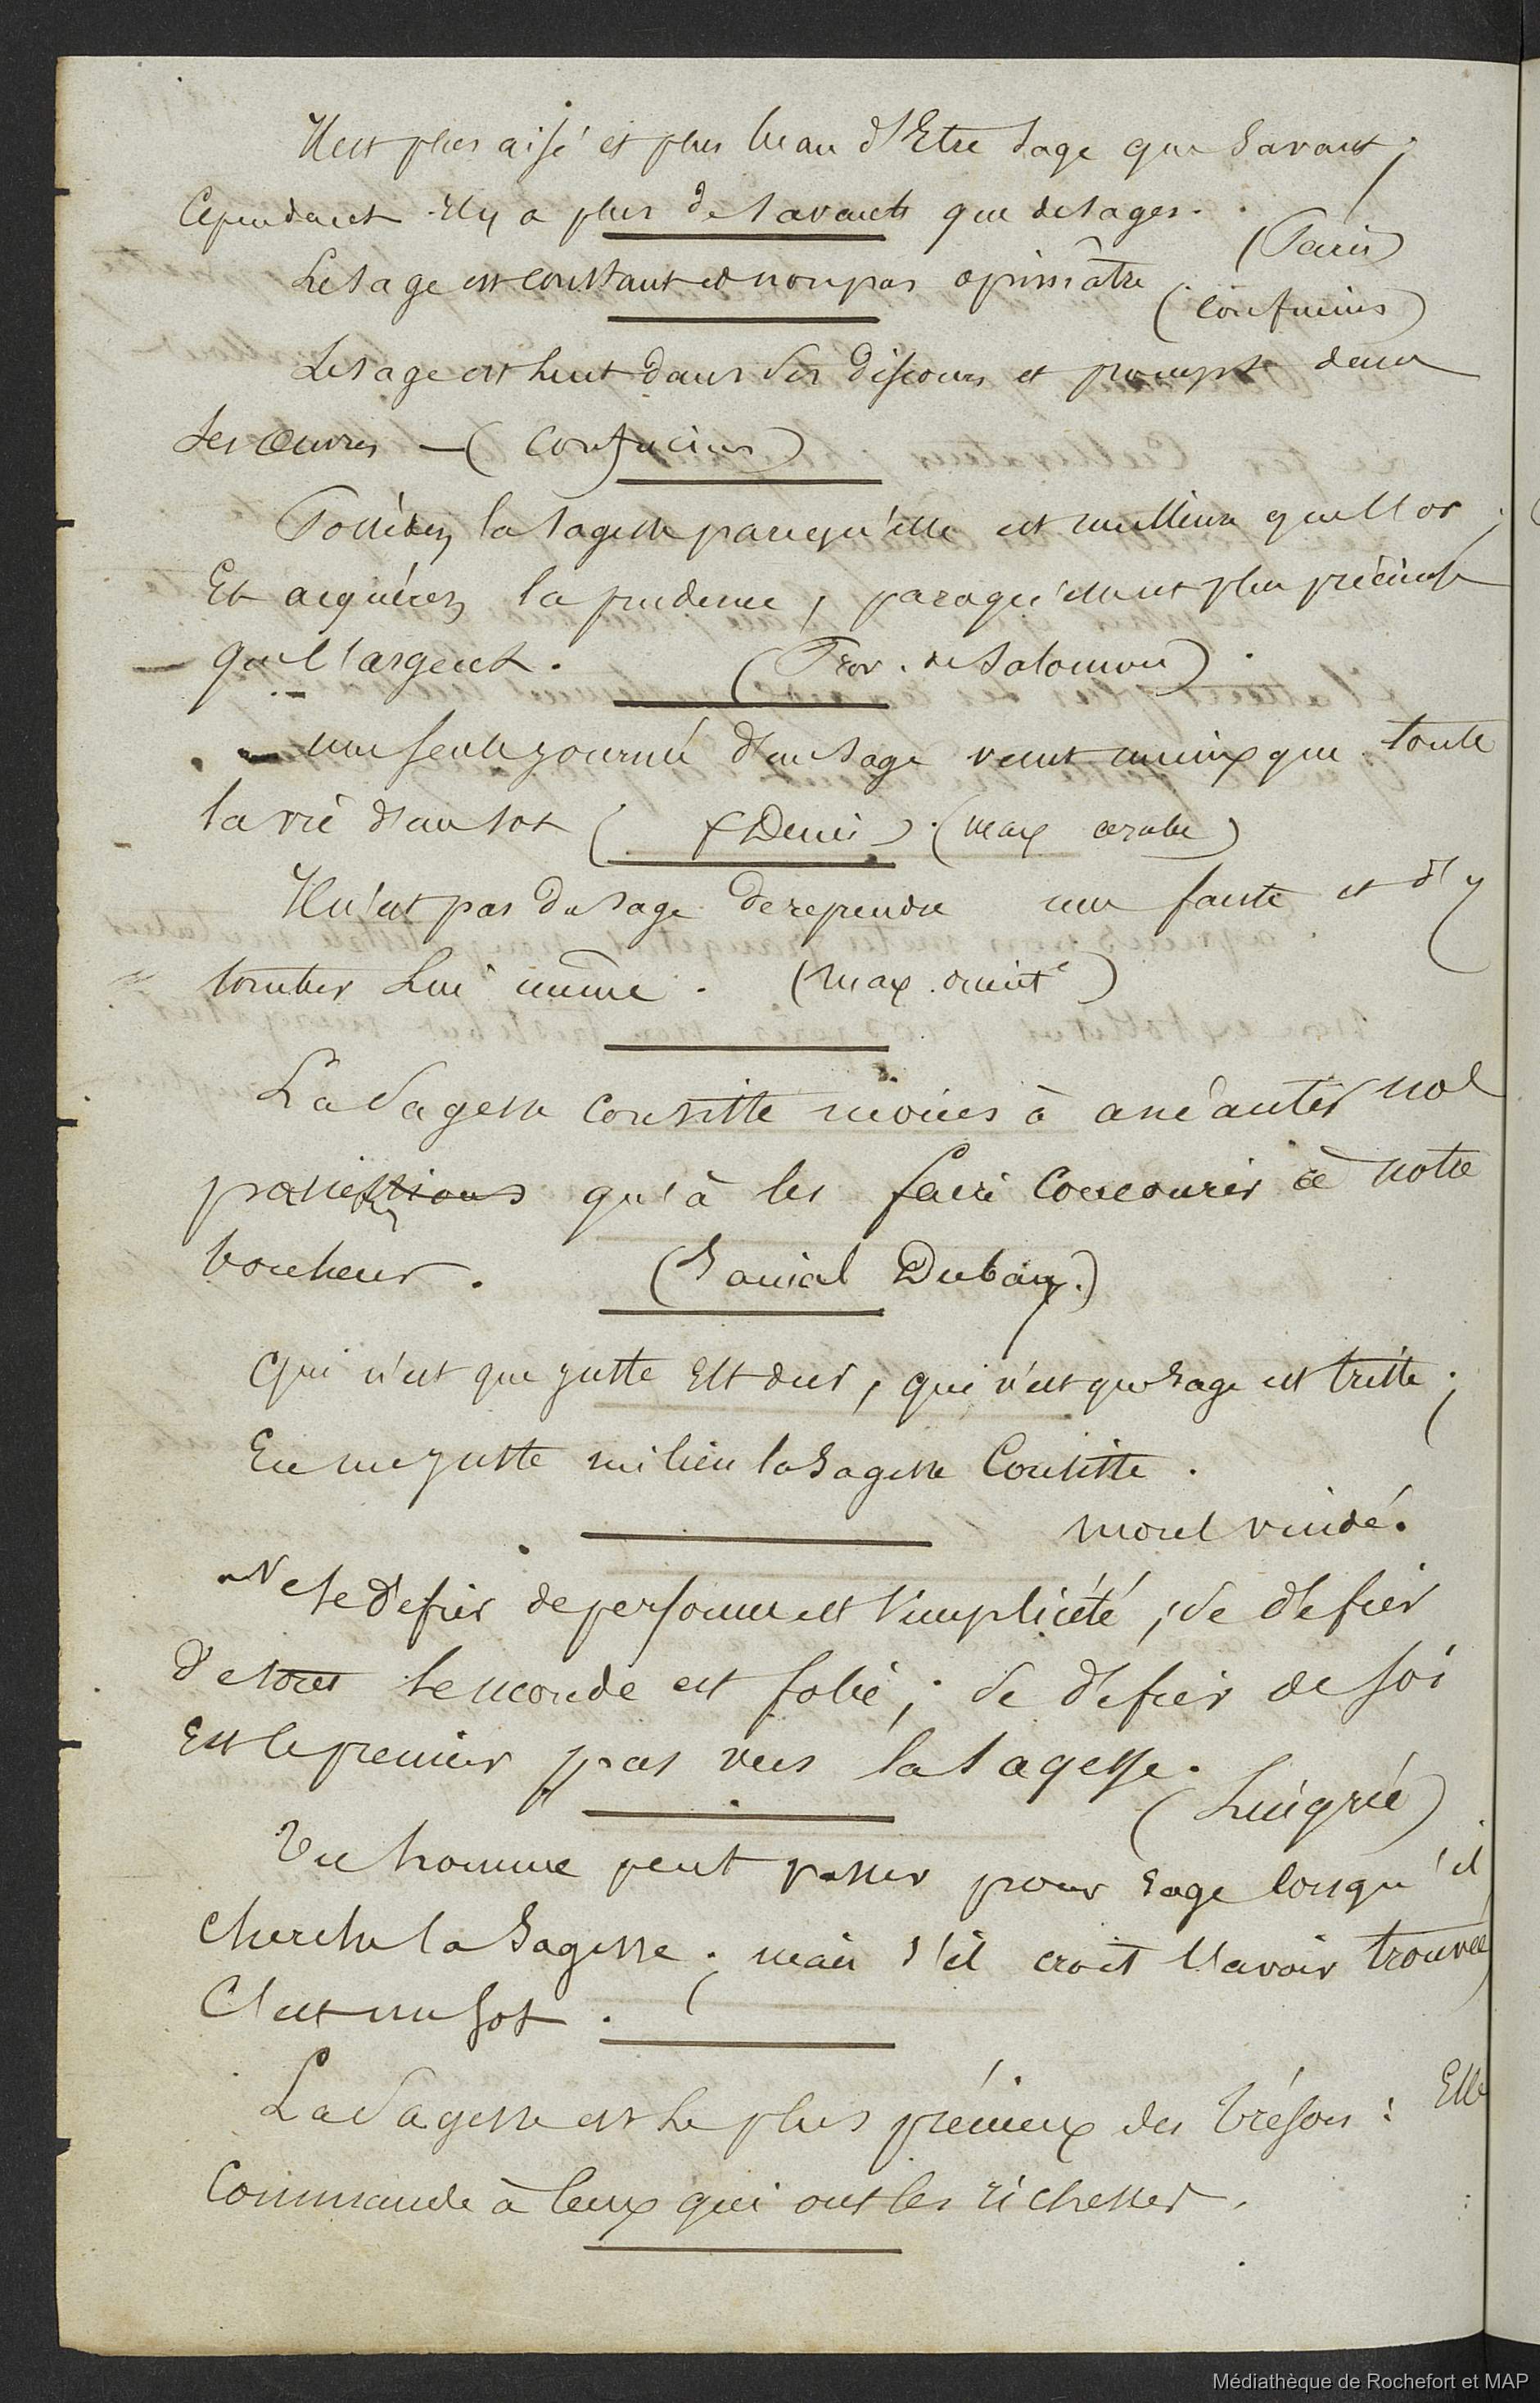 Il est plus aisé et plus beau d'Etre sage que savant ;
Cependant Il y a plus de savants que de sages.
(Paris)
Le sage est constant et non pas opiniâtre
(Confucius)
Le sage est lent dans ses discours et prompt dans
ses œuvres — (Confucius)
Possédez la sagesse parcequ'elle est meilleure que l'or ;
Et acquérez la prudence, parcequ'elle est plus précieuse
que l'argent. (Prov. de Salomon).
une seule journée d'un sage vaut mieux que toute
la vie d'un sot ( f Denis ). (max arabe)
Il n'est pas du sage de reprendre une faute et d'y
tomber Lui même. (max. orient.e)
La Sagesse consiste moins à anéantir nos
passions qu'à les faire Concourir à notre
bonheur. (Sanial Dubay.)
Qui n'est que juste Est dur, qui n'est que sage est triste ;
En un juste milieu la Sagesse Consiste.
morel vindé.
Ne se défier de personne est simplicité, ; se défier
de tout le monde est folie ; se défier de soi
Est le premier pas vers la sagesse.
(Luigrié)
Un homme peut passer pour sage lorsqu'il
Cherche la Sagesse ; mais s'il croit l'avoir trouvée
C'est un sot.
La Sagesse est le plus précieux des trésors : Elle
Commande à ceux qui ont les richesses.
Médiathèque de Rochefort et MAP